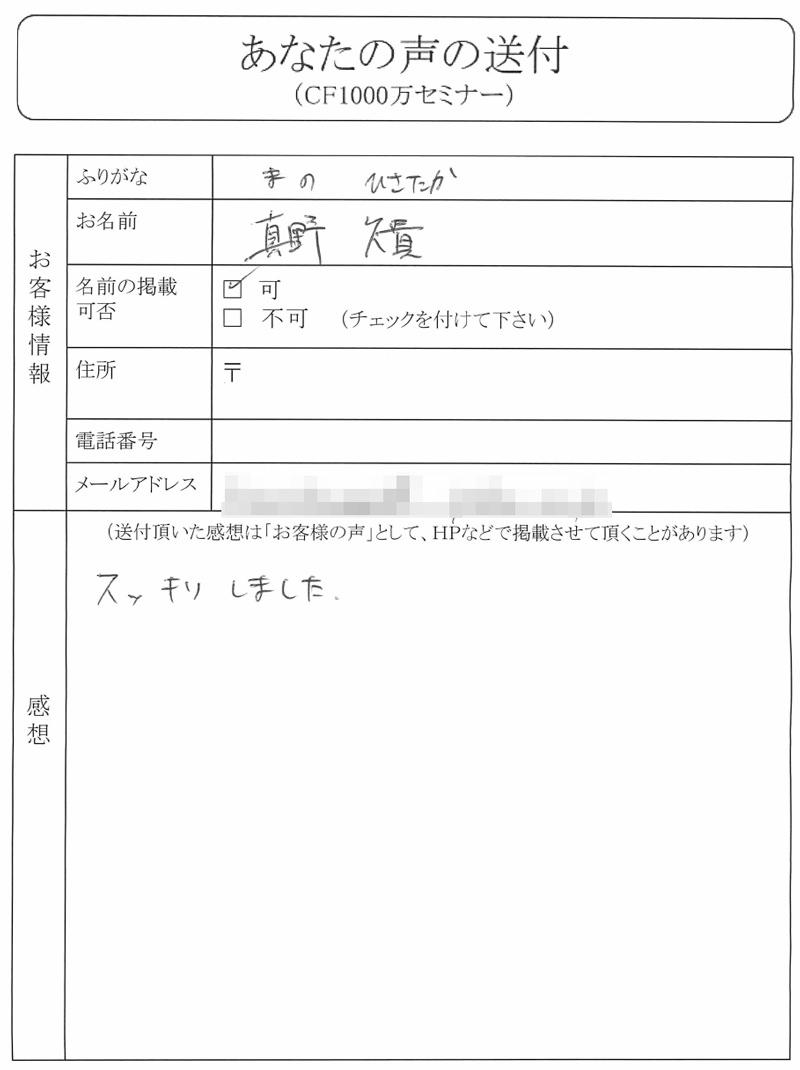 あなたの声の送付
（CF1000万セミナー）
お客様情報
ふりがな まの ひさたか
お名前 真野 久貴
名前の掲載可否
☑ 可
☐ 不可 （チェックを付けて下さい）
住所 〒
電話番号
メールアドレス
感想
（送付頂いた感想は「お客様の声」として、HPなどで掲載させて頂くことがあります）
スッキリしました.